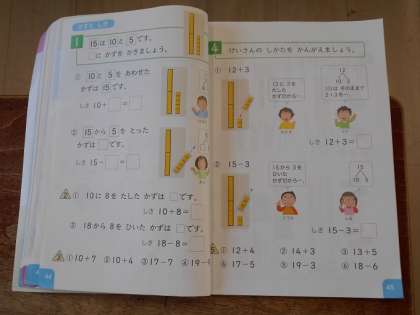 1
15は10と5です。
□に かずを かきましょう。
① 10と5を あわせた
かずは 15です。
しき 10+□=□
② 15から5を とった
かずは□です。
しき 15-□=□
① 10に8を たした かずは□です。
しき 10+8=□
② 18から8を ひいた かずは□です。
しき 18-8=□
① 10+7 ② 10+4 ③ 17-7 ④ 19-9
44
4
けいさんの しかたを かんがえましょう。
① 12+3
12
10
しき 12+3=□
② 15-3
15から 3を
ひいた
かずだから…
しき 15-3=□
① 12+4 ② 14+3 ③ 13+5
④ 17-5 ⑤ 19-3 ⑥ 18-6
45